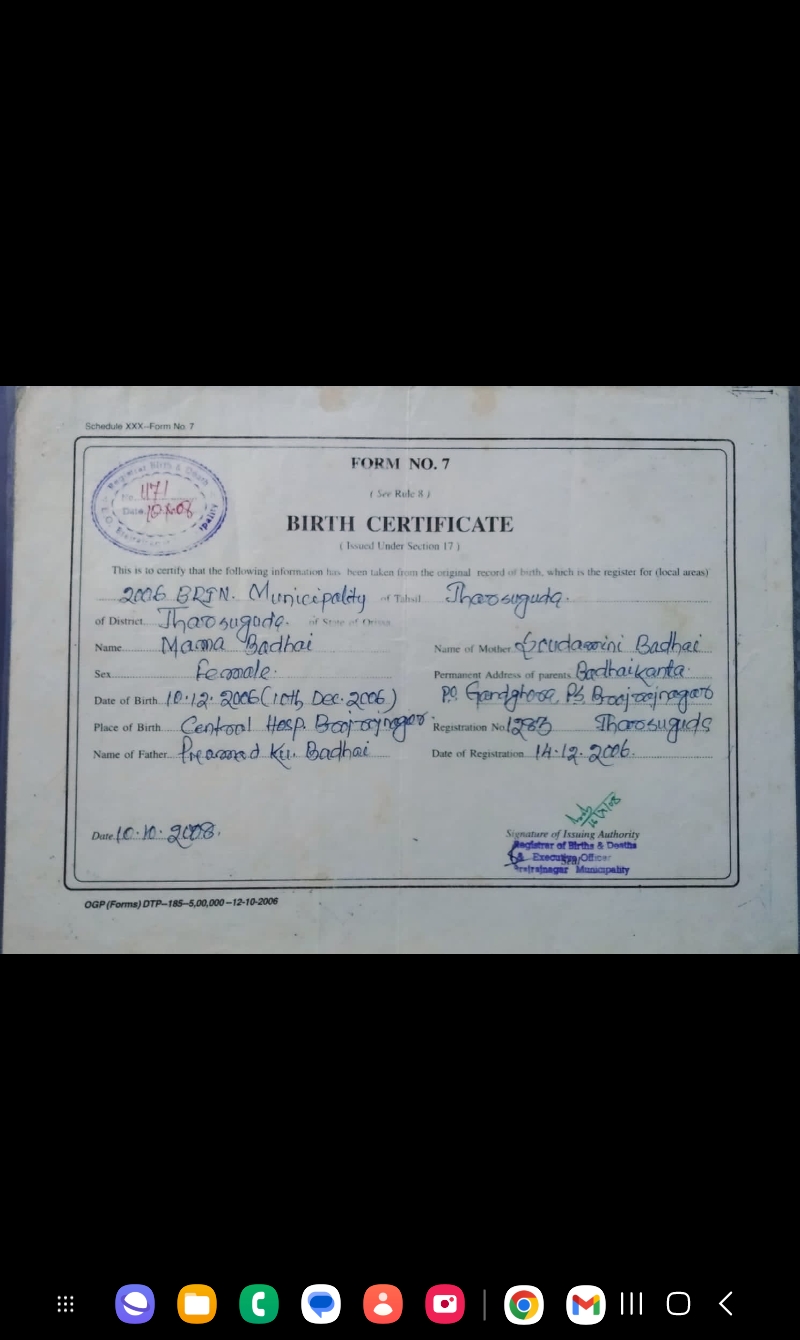 Schedule XXX–Form No. 7
FORM NO. 7
( See Rule 8 )
Registrar Birth & Death
No. 1171
Date 10.10.08
BIRTH CERTIFICATE
( Issued Under Section 17 )
This is to certify that the following information has been taken from the original record of birth, which is the register for (local areas)
2006 BRJN. Municipality of Tahsil Jharsuguda.
of District Jharsuguda. of State of Orissa
Name Mama Badhai
Name of Mother Badhai
Sex Female.
Permanent Address of parents Badhaikanta
Date of Birth 10.12.2006 (10th Dec. 2006)
PO. Gandghora, PS. Brajrajnagar
Place of Birth Central Hosp. Brajrajnagar.
Registration No. 1283 Jharsuguda
Name of Father Pramod Ku. Badhai
Date of Registration 14.12.2006.
Date 10.10.2008.
Signature of Issuing Authority
Registrar of Births & Deaths
& Executive Officer
Brajrajnagar Municipality
OGP (Forms) DTP–185–5,00,000–12-10-2006